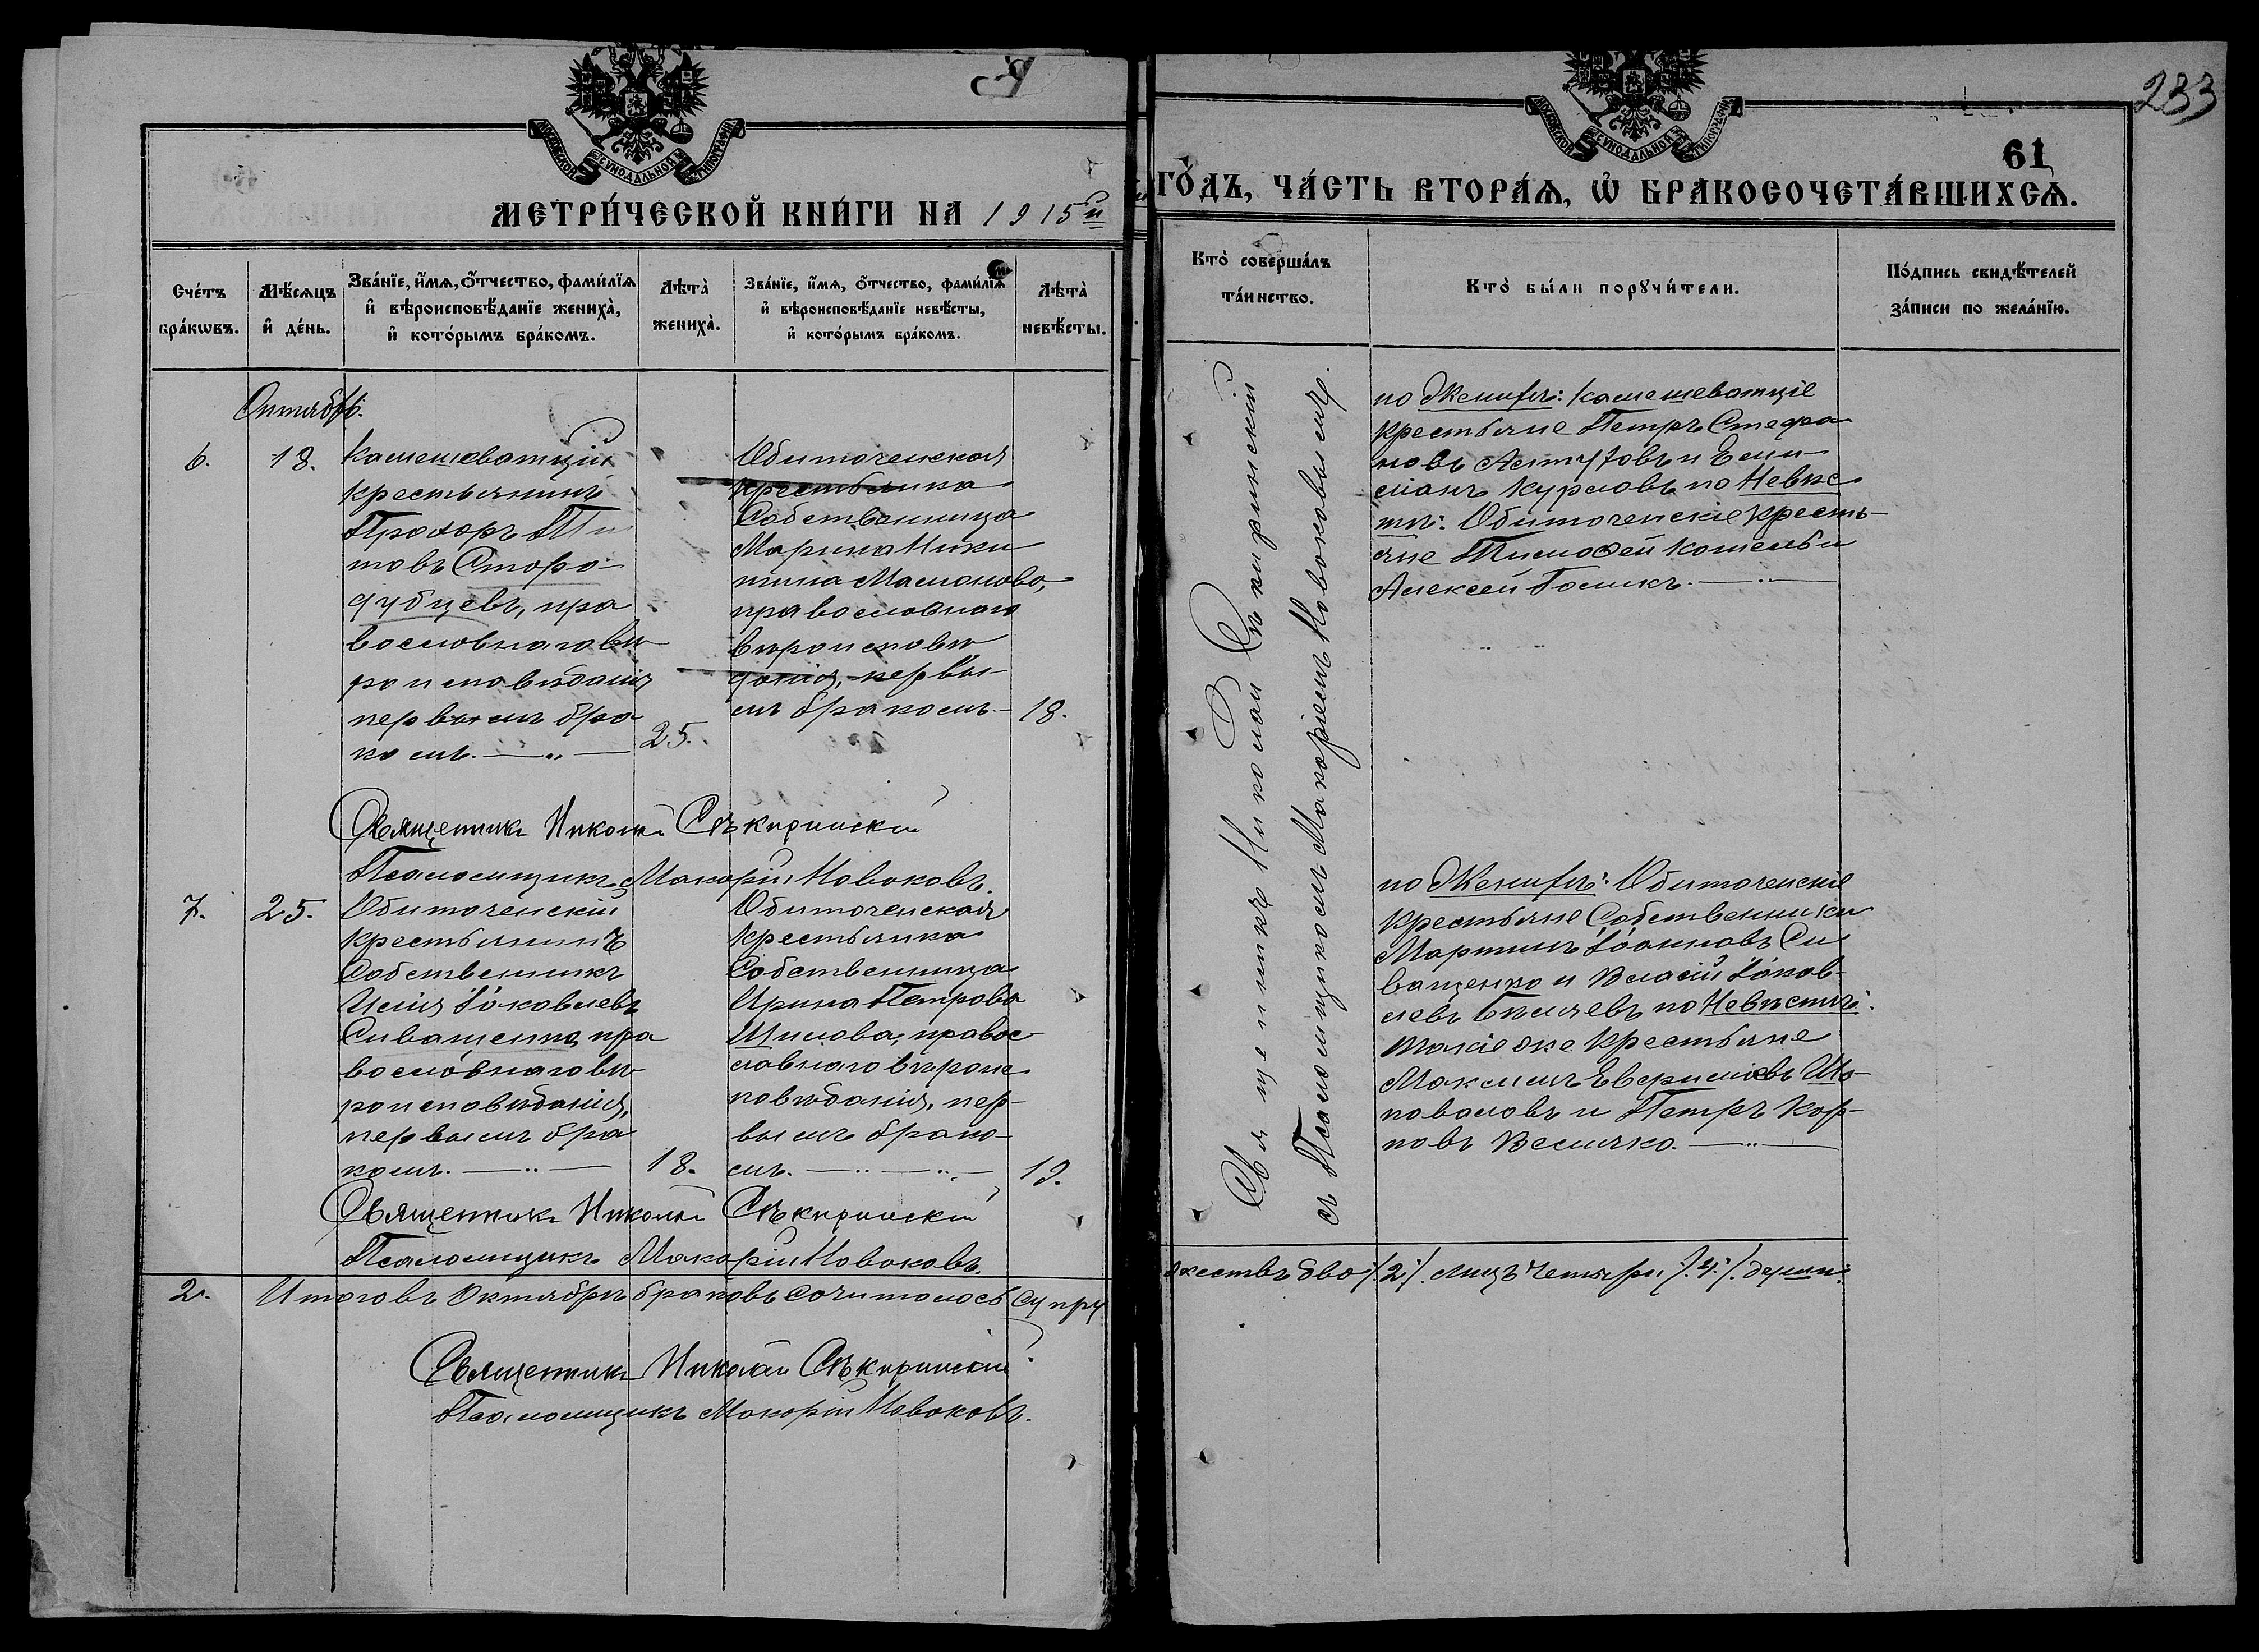 233
61
МОСКОВСКОЙ СѴНОДАЛЬНОЙ ТИПОГРАФІИ
МОСКОВСКОЙ СѴНОДАЛЬНОЙ ТИПОГРАФІИ
МЕТРИ́ЧЕСКОЙ КНИ́ГИ НА 1915й
ГО́ДЪ, ЧА́СТЬ ВТОРА́Ѧ, Ѡ҆ БРАКОСОЧЕТА́ВШИХСѦ.
Сче́тъ бра́кѡвъ.
Мѣ́сяцъ и҆ де́нь.
Зва́нїе, и҆́мѧ, ѻ҆́тчество, фами́лїѧ
и҆ вѣроисповѣ́данїе жениха̀,
и҆ кото́рымъ бра́комъ.
Лѣта̀
жениха̀.
Зва́нїе, и҆́мѧ, ѻ҆́тчество, фами́лїѧ
и҆ вѣроисповѣ́данїе невѣ́сты,
и҆ кото́рымъ бра́комъ.
Лѣта̀
невѣ́сты.
Кто̀ соверша́лъ
та́инство.
Кто̀ бы́ли порꙋчи́тели.
По́дпись свидѣ́телей
за́писи по жела́нїю.
Октябрь.
6.
18.
Камешеватскій
крестьянинъ
Прохоръ Ти
товъ Старо-
дубцевъ, пра
вославнаго вѣ
роисповѣданія
первымъ бра
комъ.
25.
Обиточенская
крестьянка
Собственница
Марина Ники
тина Мамонова,
православнаго
вѣроисповѣ
данія, первы-
мъ бракомъ.
18.
Священникъ Николай Сѣкиринскій
съ Псаломщикомъ Макаріемъ Новаковымъ.
по Женихѣ: Камешеватскіе
крестьяне Петръ Стефа
новъ и Еми-
ліанъ Курловъ по Невѣс
тѣ: Обиточенскіе кресть-
яне Тимофей Котель и
Алексей Голикъ.
Священникъ Николай Сѣкиринскій
Псаломщикъ Макарій Новаковъ.
7.
25.
Обиточенскій
крестьянинъ
Собственникъ
Илія Іаковлевъ
Сиващенко, пра
вославнаго вѣ-
роисповѣданія,
первымъ бра
комъ.
18.
Обиточенская
крестьянка
Собственница
Ирина Петрова
Шилова, правос
лавнаго вѣроис
повѣданія, пер-
вымъ брако-
мъ.
19.
по Женихѣ: Обиточенскіе
крестьяне Собственники
Мартинъ Іоанновъ Си
ващенко и Власій Іаков-
левъ Бѣляевъ по Невѣстѣ:
такіе же крестьяне
Максимъ Ша-
поваловъ и Петръ Кар-
повъ Величко.
Священникъ Николай Сѣкиринскій
Псаломщикъ Макарій Новаковъ.
2. Итого въ Октябрѣ браковъ сочиталось супру
жествъ два /2/. лицъ четыри /4/. душъ.
Священникъ Николай Сѣкиринскій
Псаломщикъ Макарій Новаковъ.